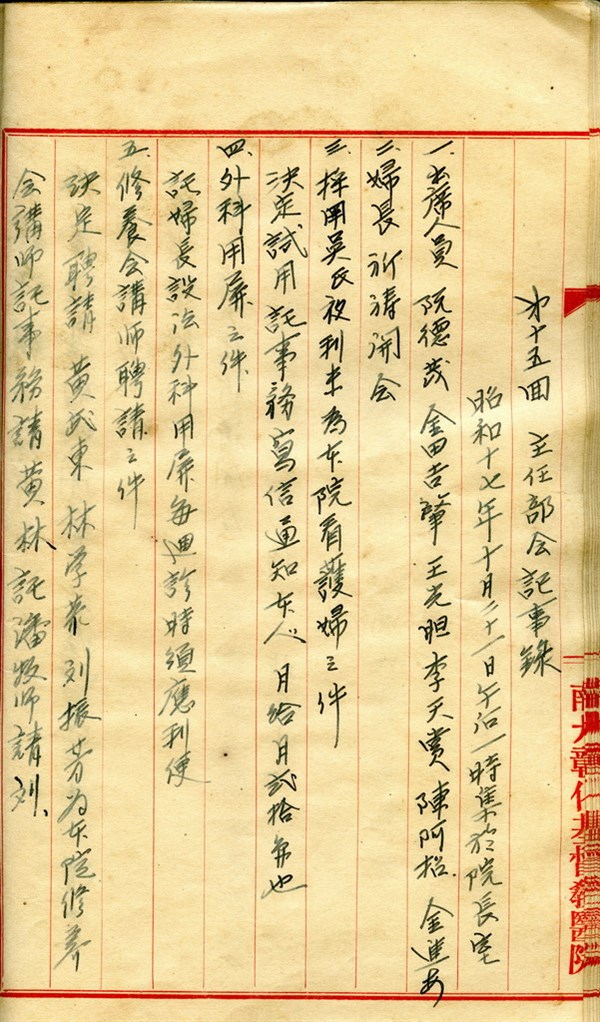 第十五回 主任部会記事錄
昭和十七年十月二十一日午后一時集於院長室
一.出席人員 阮德茂 金田吉肇 王光明 李天賞 陳阿招 金進安
二.婦長 祈祷開会
三.採用吳氏被利未為本院看護婦之件
決定試用託事務寫信通知本人 月給月貳拾弗也
四.外科用屏之件
託婦長設法外科用屏每週診時須應利便
五.修養会講師聘請之件
決定聘請 黃武東 林学恭 刘振芳为本院修养
会講師託事務請黃林 託潘牧師請刘.
彰化基督教醫院